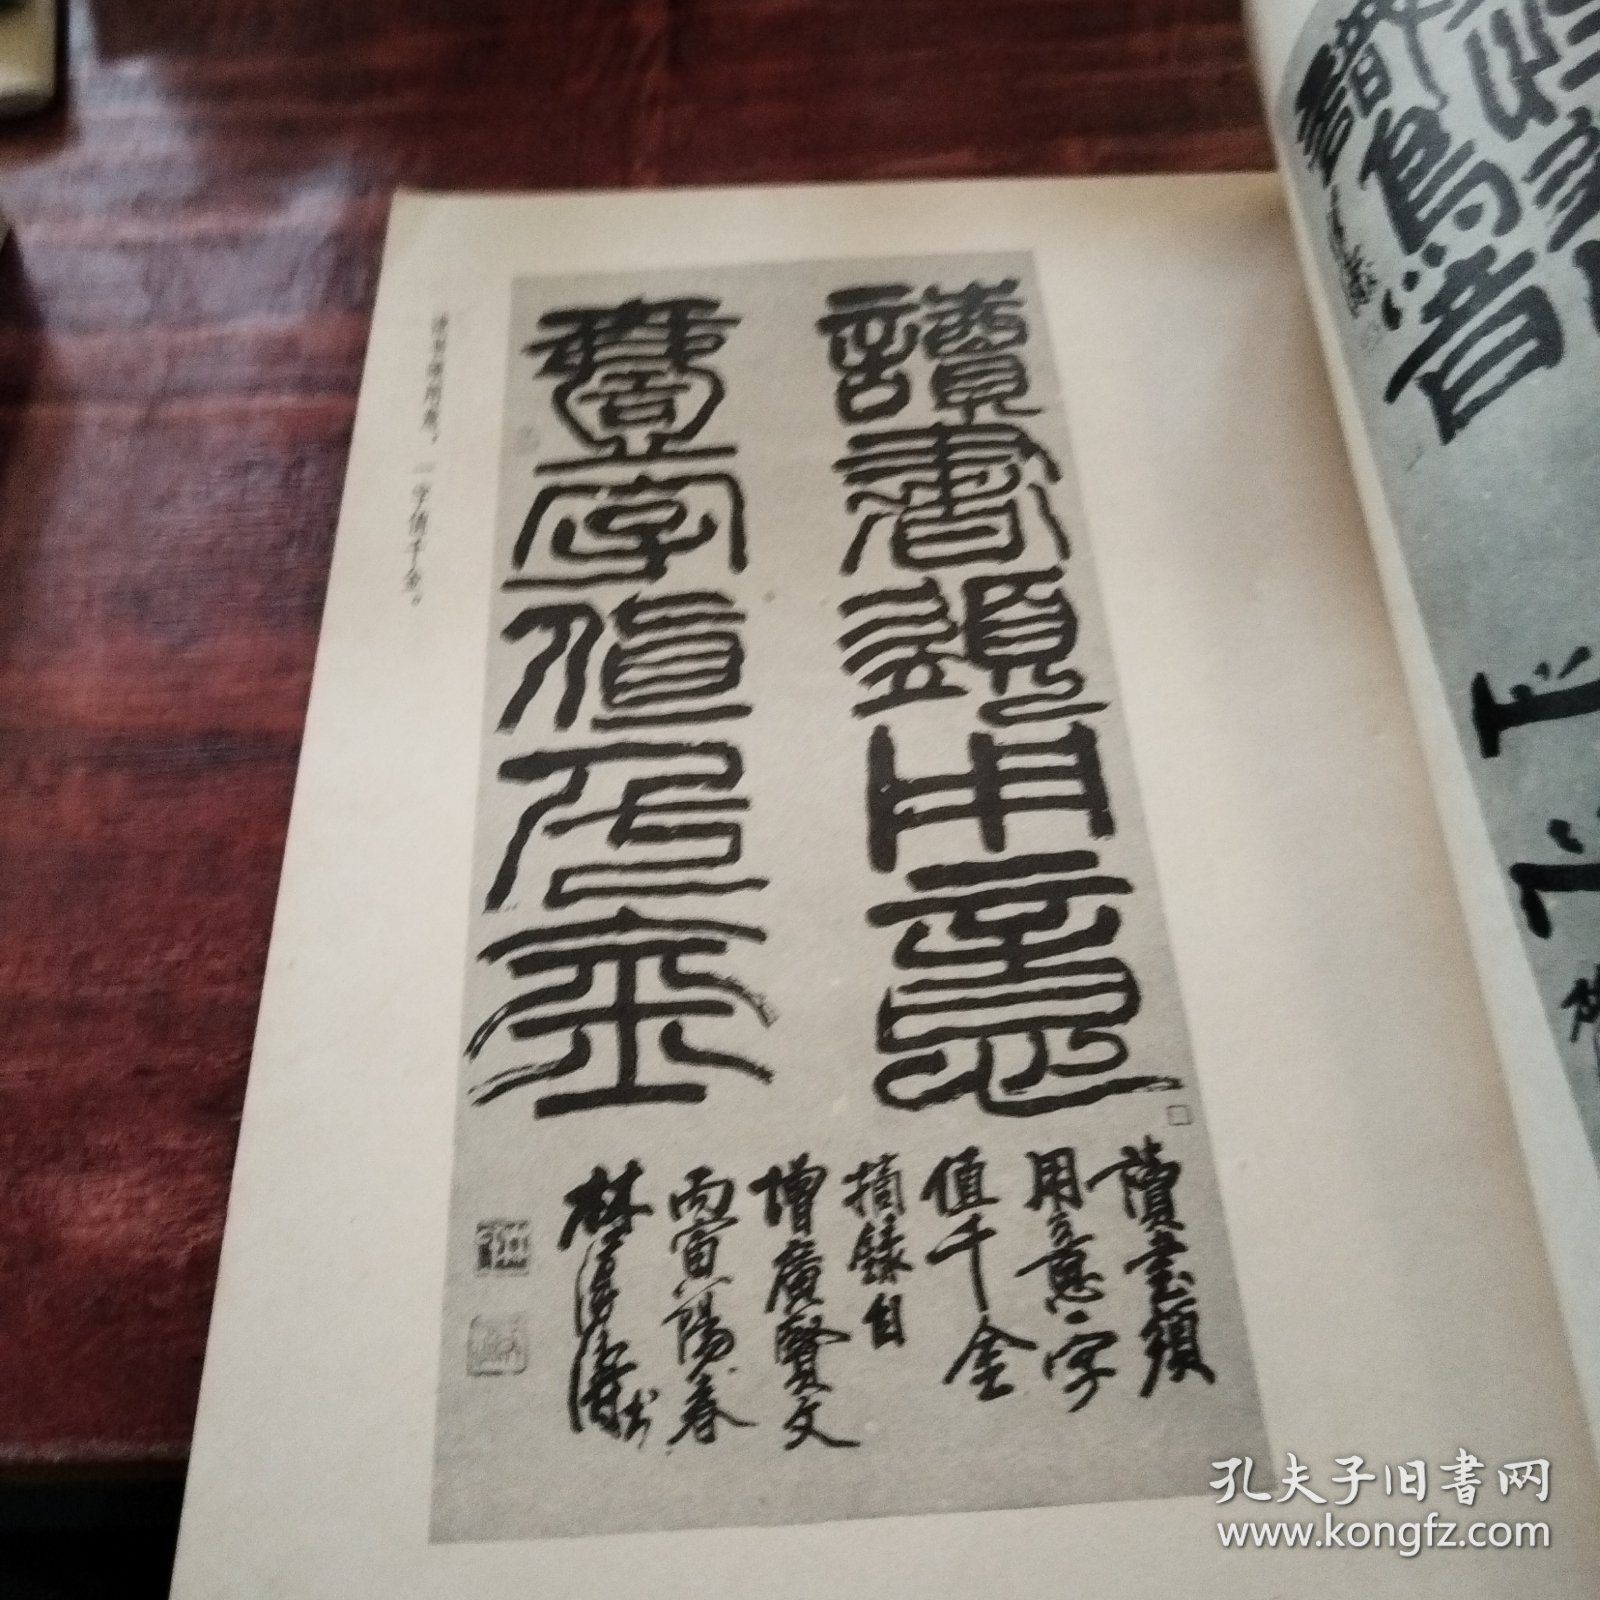 讀書須用意
壹字值千金
讀書須
用意一字
值千金
摘錄自
增廣賢文
丙寅陽春
林
書
读书须用意，一字值千金。
孔夫子旧书网
www.kongfz.com